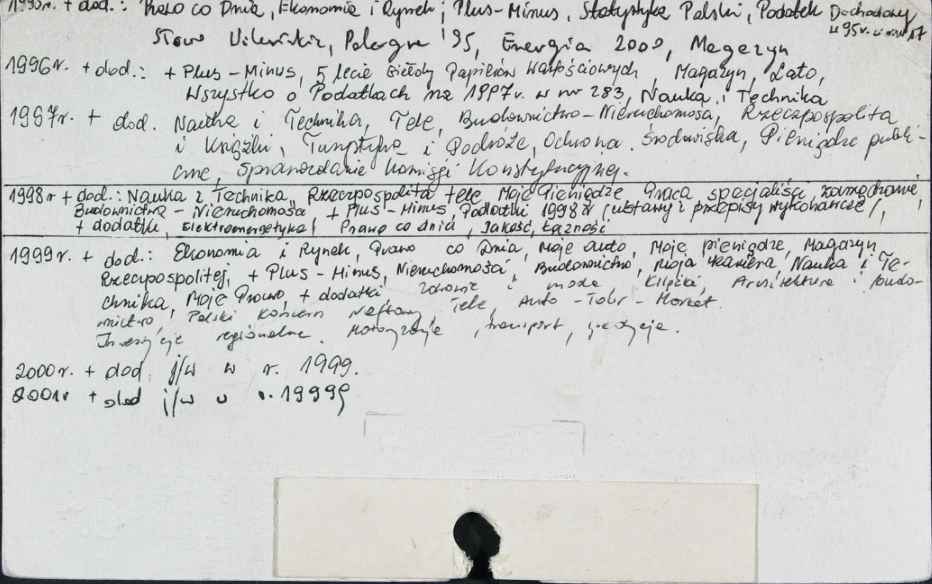 1995r. + dod.: Prawo co Dnia, Ekonomia i Rynek, Plus-Minus, Statystyka Polski, Podatek Dochodowy
w 95r. w nr 17
Słowo Wileńskie, Polagra '95, Energia 2000, Magazyn
1996r. + dod.: + Plus-Minus, 5 lecie Giełdy Papierów Wartościowych, Magazyn, Lato,
Wszystko o Podatkach na 1997r. w nr 283, Nauka i Technika
1997r. + dod. Nauka i Technika, Tele, Budownictwo-Nieruchomości, Rzeczpospolita
i Książki, Turystyka i Podróże, Ochrona Środowiska, Pieniądze publi-
czne, Sprawozdanie Komisji Konstytucyjnej.
1998r + dod.: Nauka i Technika, Rzeczpospolita tele, Moje Pieniądze, Praca, specjaliści, zarządzanie,
Budownictwo - Nieruchomości + Plus-Minus, Podatki 1998r (ustawy i przepisy wykonawcze),
+ dodatki, Elektroenergetyka, Prawo co dnia, Jakość, Łączność
1999r. + dod: Ekonomia i Rynek, Prawo co Dnia, Moje auto, Moje pieniądze, Magazyn
Rzeczpospolitej, + Plus-Minus, Nieruchomości, Budownictwo, Moja kariera, Nauka i Te-
chnika, Moje Prawo, + dodatki Zdrowie i moda, Książki, Architektura i budo-
wnictwo, Polski Koncern Naftowy, Tele, Auto-Tour-Market.
Inwestycje regionalne. Motoryzacja, transport,
2000r. + dod. j/w w r. 1999.
2001r + dod j/w w r. 1999